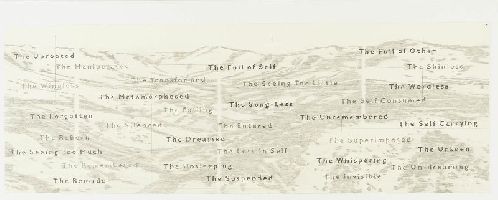 The Uprooted
The Full of Self
The Full of Other
The Manipulated
The Shinless
The Transformed
The Seeing Too Little
The Wingless
The Wordless
The Metamorphosed
The Song-Less
The Self Consumed
The Falling
The Forgotten
The Unremembered
The Silenced
The Entered
The Self Carrying
The Reborn
The Dreamed
The Superimposed
The Seeing Too Much
The Lost in Self
The Unseen
The Whispering
The Remembered
The Unsleeping
The Undreaming
The Remade
The Suspended
The Invisible